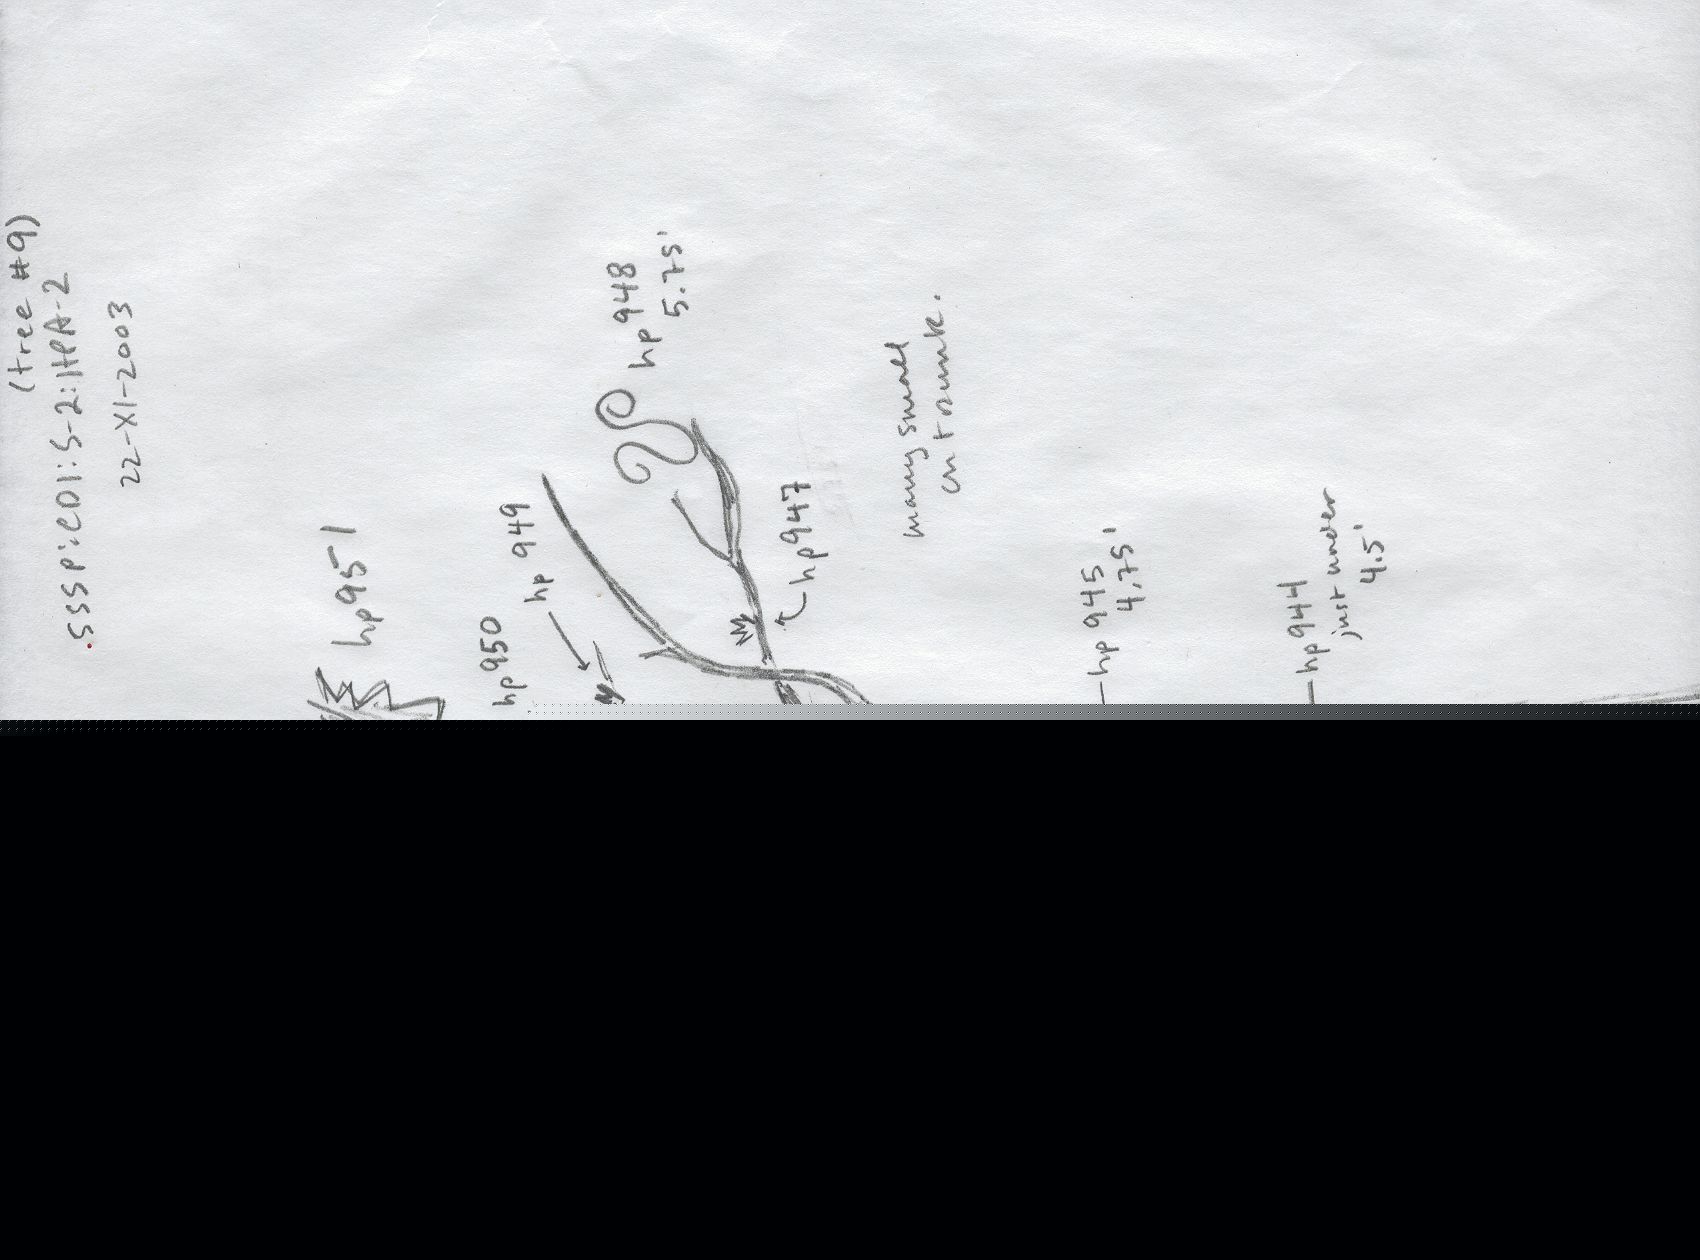 (tree #9)
SSSP:CD1:S-2:HPA-2
22-XI-2003
hp951
hp950
hp 949
hp 948
5.75'
hp947
many small
on trunk.
hp 945
4.75'
hp 944
just under
4.5'